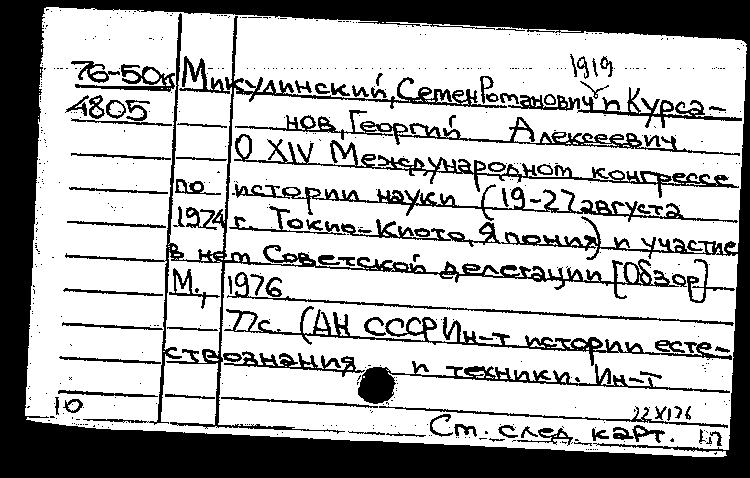 1919
76-50кs Микулинский, Семен Романович и Курса-
4805 нов, Георгий Алексеевич
О XIV Международном конгрессе
по истории науки (19-27 августа
1974 г. Токио-Киото, Япония) и участие
в нем Советской делегации. [Обзор]
М., 1976.
77с. (АН СССР Ин-т истории есте-
ствознания и техники. Ин-т
10 22 XI76
Ст. след. карт.